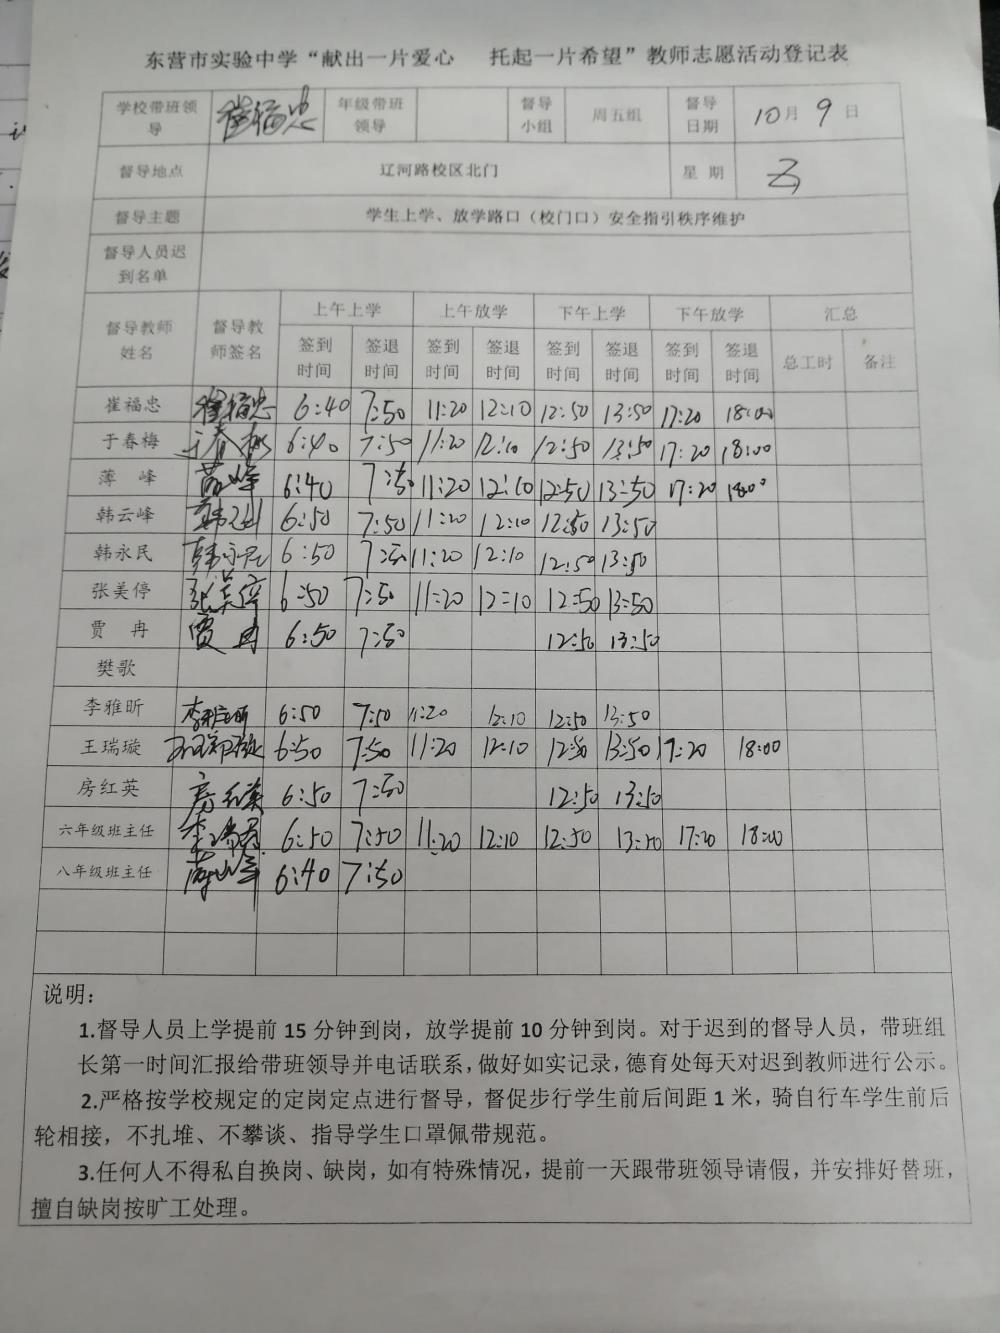 东营市实验中学“献出一片爱心 托起一片希望”教师志愿活动登记表
学校带班领导 崔福忠 年级带班领导 督导小组 周五组 督导日期 10月9日
督导地点 辽河路校区北门 星 期 五
督导主题 学生上学、放学路口（校门口）安全指引秩序维护
督导人员迟到名单
督导教师姓名 督导教师签名 上午上学 上午放学 下午上学 下午放学 汇总
签到时间 签退时间 签到时间 签退时间 签到时间 签退时间 签到时间 签退时间 总工时 备注
崔福忠 崔福忠 6:40 7:50 11:20 12:10 12:50 13:50 17:20 18:00
于春梅 于春梅 6:40 7:50 11:20 12:10 12:50 13:50 17:20 18:00
薄 峰 薄峰 6:40 7:50 11:20 12:10 12:50 13:50 17:20 18:00
韩云峰 韩云峰 6:50 7:50 11:20 12:10 12:50 13:50
韩永民 韩永民 6:50 7:50 11:20 12:10 12:50 13:50
张美停 张美停 6:50 7:50 11:20 12:10 12:50 13:50
贾 冉 贾冉 6:50 7:50 12:50 13:50
樊歌
李雅昕 李雅昕 6:50 7:50 11:20 12:10 12:50 13:50
王瑞璇 王瑞璇 6:50 7:50 11:20 12:10 12:50 13:50 17:20 18:00
房红英 房红英 6:50 7:50 12:50 13:50
六年级班主任 6:50 7:50 11:20 12:10 12:50 13:50 17:20 18:00
八年级班主任 薄峰 6:40 7:50
说明：
1.督导人员上学提前 15 分钟到岗，放学提前 10 分钟到岗。对于迟到的督导人员，带班组
长第一时间汇报给带班领导并电话联系，做好如实记录，德育处每天对迟到教师进行公示。
2.严格按学校规定的定岗定点进行督导，督促步行学生前后间距 1 米，骑自行车学生前后
轮相接，不扎堆、不攀谈、指导学生口罩佩带规范。
3.任何人不得私自换岗、缺岗，如有特殊情况，提前一天跟带班领导请假，并安排好替班，
擅自缺岗按旷工处理。